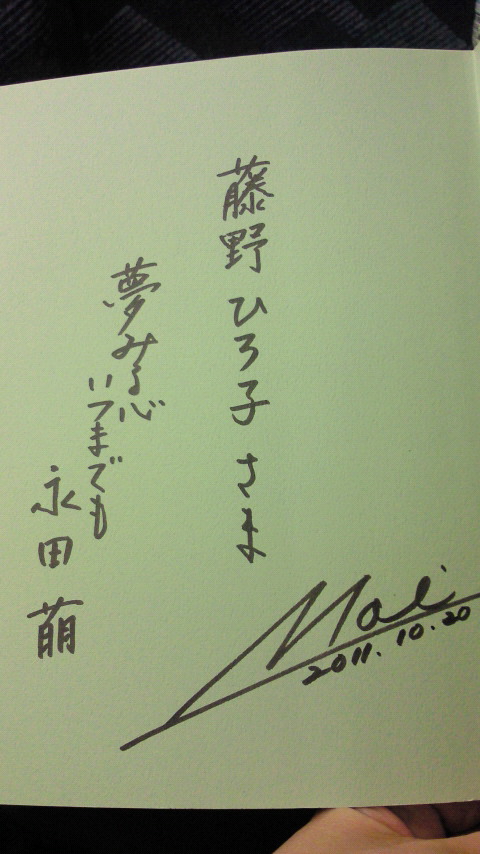 藤野ひろ子さま
夢みる心
いつまでも
永田萠
Moe
2011.10.20